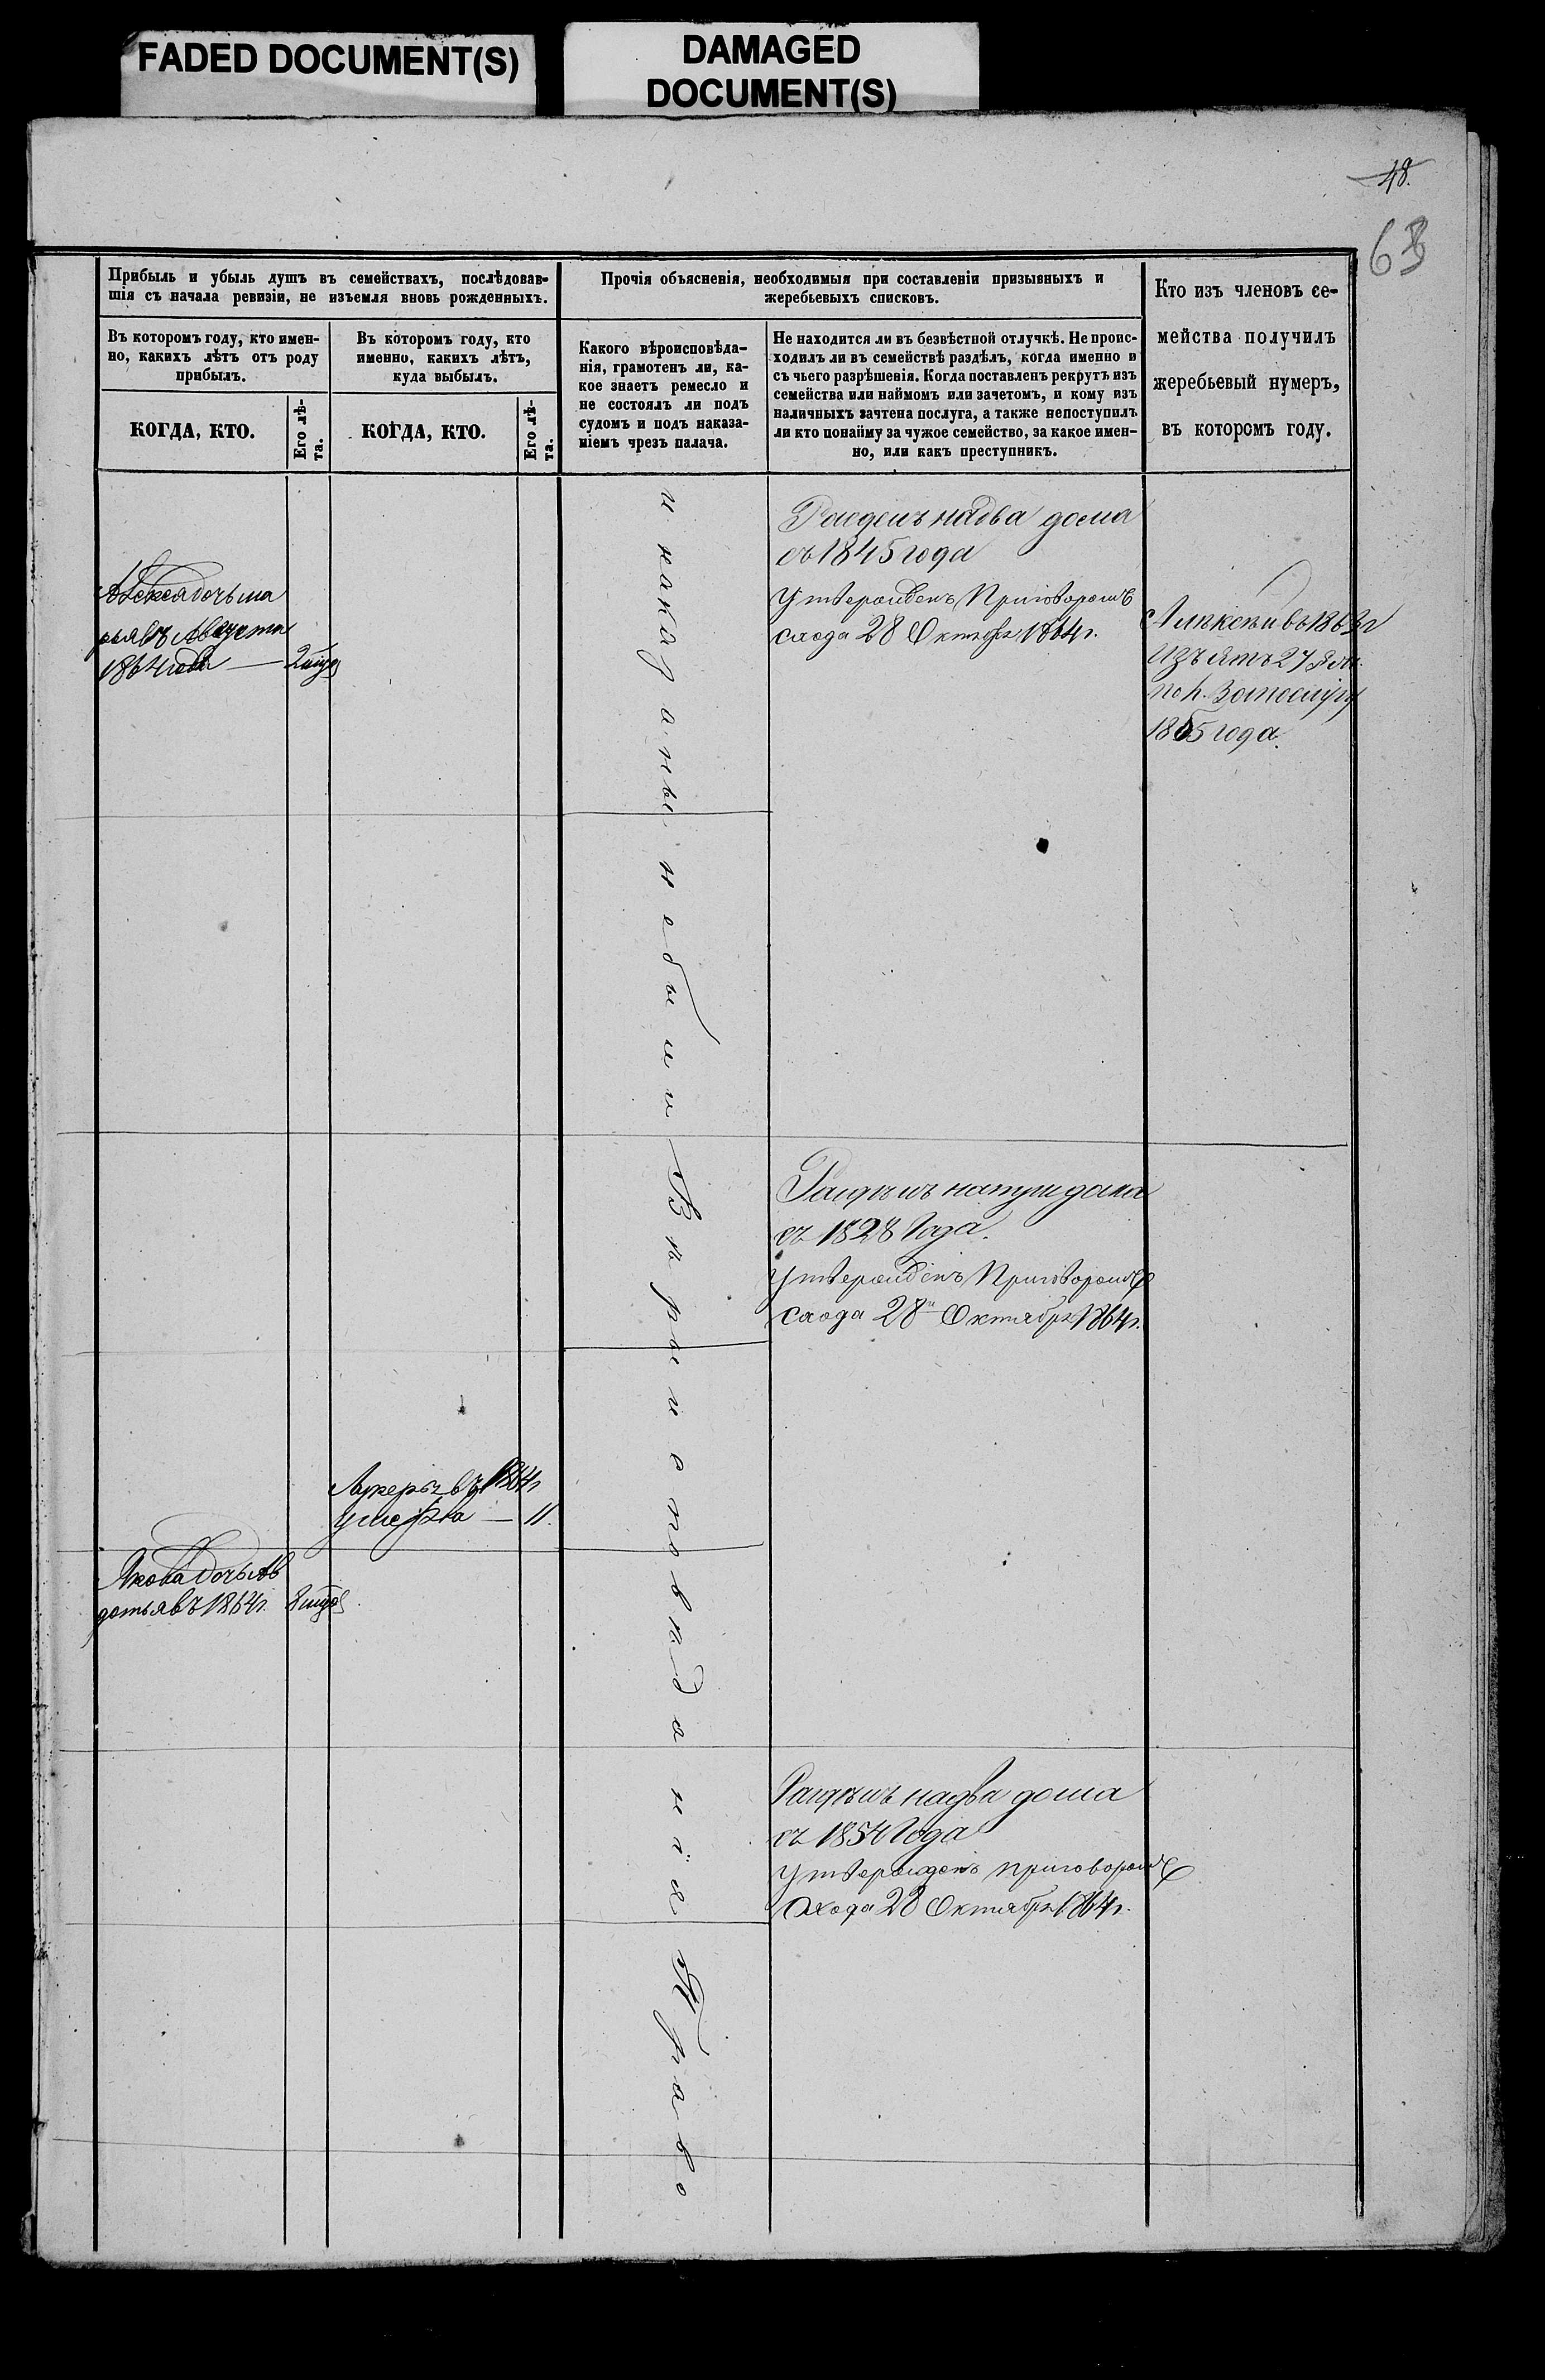 FADED DOCUMENT(S)
DAMAGED
DOCUMENT(S)
48.
63
Прибыль и убыль душъ въ семействахъ, послѣдовав-
шія съ начала ревизіи, не изъемля вновь рожденныхъ.
Въ которомъ году, кто имен-
но, какихъ лѣтъ отъ роду
прибылъ.
Въ которомъ году, кто
именно, какихъ лѣтъ,
куда выбылъ.
КОГДА, КТО.
Его лѣ-
та.
КОГДА, КТО.
Его лѣ-
та.
Прочія объясненія, необходимыя при составленіи призывныхъ и
жеребьевыхъ списковъ.
Какого вѣроисповѣда-
нія, грамотенъ ли, ка-
кое знаетъ ремесло и
не состоялъ ли подъ
судомъ и подъ наказа-
ніемъ чрезъ палача.
Не находится ли въ безвѣстной отлучкѣ. Не проис-
ходилъ ли въ семействѣ раздѣлъ, когда именно и
съ чьего разрѣшенія. Когда поставленъ рекрутъ изъ
семейства или наймомъ или зачетомъ, и кому изъ
наличныхъ зачтена послуга, а также непоступилъ
ли кто понайму за чужое семейство, за какое имен-
но, или какъ преступникъ.
Кто изъ членовъ се-
мейства получилъ
жеребьевый нумеръ,
въ которомъ году.
дочь Ма
рья въ Августа
1864 года
и наказаны небыли Вѣроисповѣданія Право
надва дома
съ 1845 года
Утвержденъ Приговоромъ
схода 28 Октября 1864 г.
въ 1863 г
изъятъ 27
1865 года.
дома
съ 1828 Года.
Утвержденъ Приговоромъ
схода 28 Октября 1864 г.
въ 1864 г
умерла — 11.
Якова дочь Ав
дотья въ 1864 г.
надва дома
съ 1854 Года
Утвержденъ приговоромъ
Схода 28 Октября 1864 г.